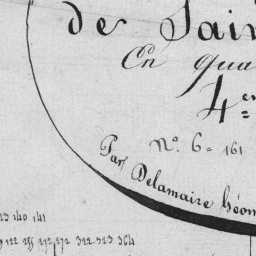 de Sain
En qua
4 e
N° 6 = 161
Par Delamaire Géom
23 140 141
122 272 322 323 364